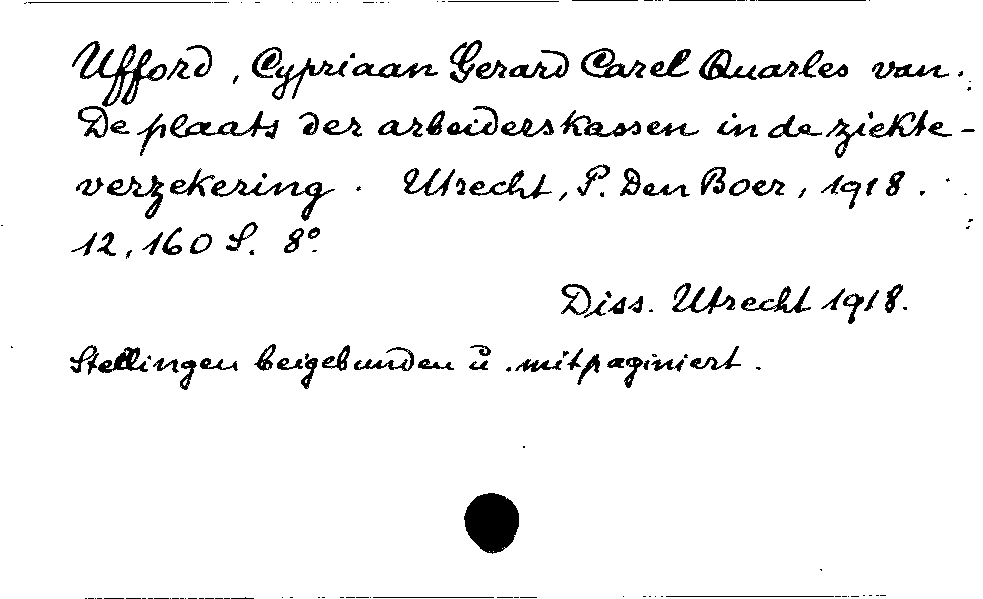 Ufford, Cypriaan Gerard Carel Quarles van.
De plaats der arbeiderskassen in de ziekte-
verzekering. Utrecht, P. Den Boer, 1918.
12, 160 S. 8°.
Diss. Utrecht 1918.
Stellingen beigebunden u. mitpaginiert.